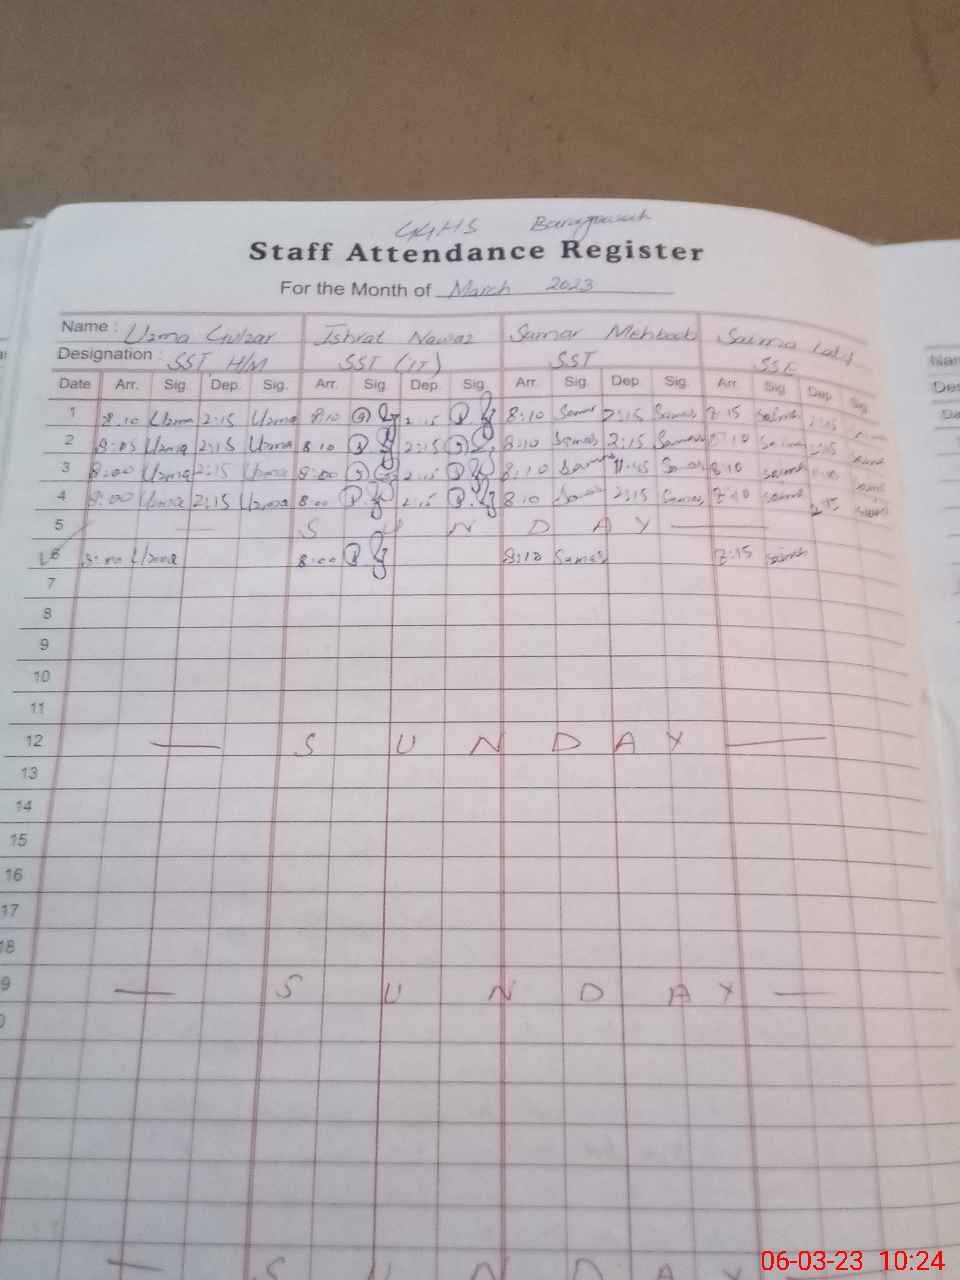 GGHS
Staff Attendance Register
For the Month of March 2023
Name : Uzma Gulzar Ishrat Nawaz Samar Mehboob Saima Latif
Designation : SST H/M SST (IT) SST SSE
Date Arr. Sig. Dep. Sig. Arr. Sig. Dep. Sig. Arr. Sig. Dep. Sig. Arr. Sig. Dep. Sig.
1 8:10 Uzma 2:15 Uzma 8:10 2:15 8:10 Samar 2:15 Samar 7:15 Saima
2 8:05 Uzma 2:15 Uzma 8:10 2:15 8:10 Samar 2:15 Samar Saima Saima
3 8:00 Uzma 2:15 Uzma 8:00 8:10 Samar 11:45 Samar 8:10 Saima Saima
4 8:00 Uzma 2:15 Uzma 8:00 2:15 8:10 Samar 2:15 Samar Saima 2:15 Saima
5 S U N D A Y
6 8:00 Uzma 8:00 8:10 Samar 7:15 Saima
7
8
9
10
11
12 S U N D A Y
13
14
15
16
17
18
9 S U N D A Y
S U N D A Y
06-03-23 10:24